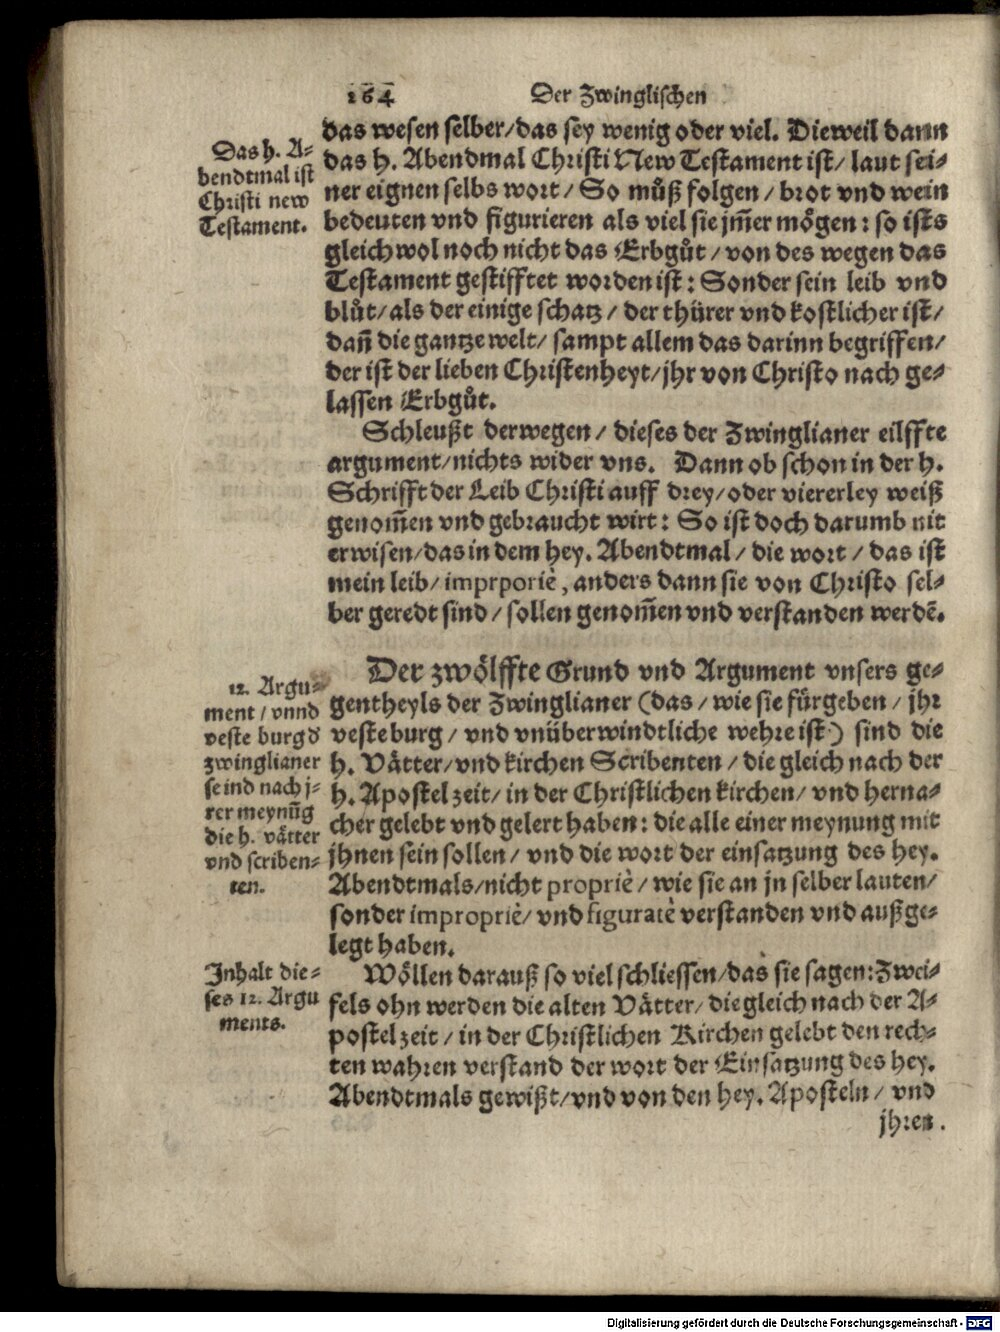 164 Der Zwinglischen
das wesen selber/das sey wenig oder viel. Dieweil dann
das h. Abendmal Christi New Testament ist/ laut sei-
ner eignen selbs wort/ So můß folgen/ brot vnd wein
bedeuten vnd figurieren als viel sie jm̃er mögen: so ists
gleichwol noch nicht das Erbgůt/ von des wegen das
Testament gestifftet worden ist: Sonder sein leib vnd
blůt/ als der einige schatz/ der thürer vnd kostlicher ist/
dañ die gantze welt/ sampt allem das darinn begriffen/
der ist der lieben Christenheyt/ jhr von Christo nach ge-
lassen Erbgůt.
Das h. A-
bendtmal ist
Christi new
Testament.
Schleußt derwegen/ dieses der Zwinglianer eilffte
argument/nichts wider vns. Dann ob schon in der h.
Schrifft der Leib Christi auff drey/oder viererley weiß
genom̃en vnd gebraucht wirt: So ist doch darumb nit
erwisen/das in dem hey. Abendtmal/ die wort/ das ist
mein leib/ imprporiè, anders dann sie von Christo sel-
ber geredt sind/ sollen genom̃en vnd verstanden werdẽ.
Der zwölffte Grund vnd Argument vnsers ge-
gentheyls der Zwinglianer (das/ wie sie fürgeben/ jhr
veste burg/ vnd vnüberwindtliche wehre ist) sind die
h. Vätter/vnd kirchen Scribenten/ die gleich nach der
h. Apostel zeit/ in der Christlichen kirchen/ vnd herna-
cher gelebt vnd gelert haben: die alle einer meynung mit
jhnen sein sollen/ vnd die wort der einsatzung des hey.
Abendtmals/nicht propriè/ wie sie an jn selber lauten/
sonder impropriè/ vnd figuratè verstanden vnd außge-
legt haben.
12. Argu-
ment/ vnnd
veste burg d'
zwinglianer
seind nach j-
rer meynũg
die h. vätter
vnd scriben-
ten.
Wöllen darauß so viel schliessen/das sie sagen: Zwei-
fels ohn werden die alten Vätter/ die gleich nach der A-
postel zeit/ in der Christlichen Kirchen gelebt den rech-
ten wahren verstand der wort der Einsatzung des hey.
Abendtmals gewißt/vnd von den hey. Aposteln/ vnd
jhren.
Inhalt die-
ses 12. Argu
ments.
Digitalisierung gefördert durch die Deutsche Forschungsgemeinschaft - DFG